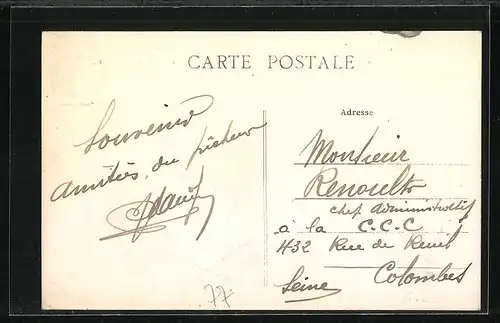 CARTE POSTALE
Souvenir
amitiés, du pêcheur
Adresse
Monsieur
Renoult
chef Administratif
à la C.C.C
432 Rue de
Colombes
Seine
77